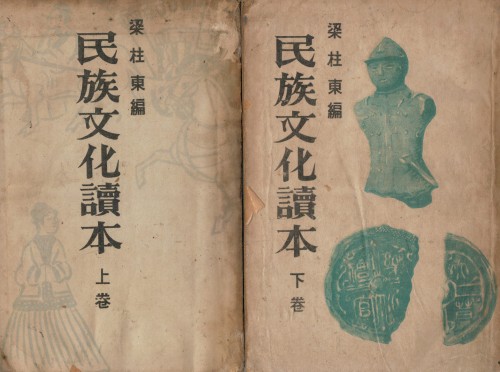 梁柱東編
民族文化讀本
上卷
梁柱東編
民族文化讀本
下卷